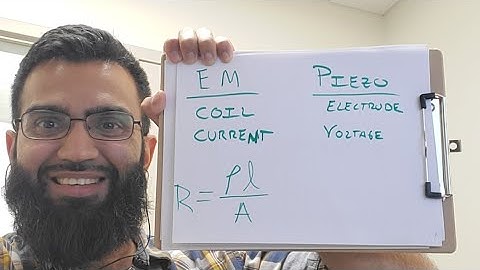 EM
COIL
CURRENT
PIEZO
ELECTRODE
VOLTAGE
R = ρl/A